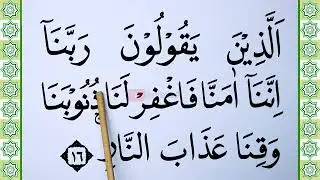 اَلَّذِيْنَ يَقُوْلُوْنَ رَبَّنَآ
اِنَّنَآ اٰمَنَّا فَاغْفِرْ لَنَا ذُنُوْبَنَا
وَقِنَا عَذَابَ النَّارِ ﴿١٦﴾